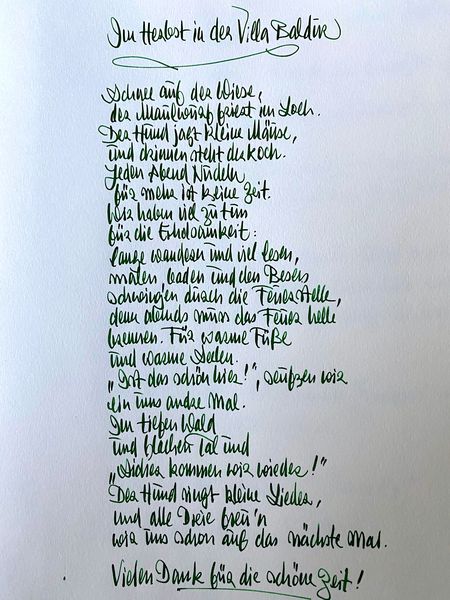 Im Herbst in der Villa Baldur
Schnee auf der Wiese,
der Maulwurf friert im Loch.
Der Hund jagt kleine Mäuse,
und drinnen steht der Koch.
Jeden Abend Nudeln
für mehr ist keine Zeit.
Wir haben viel zu tun
für die Erholsamkeit:
lange wandern und viel lesen,
malen, baden und den Besen
schwingen durch die Feuerstelle,
denn abends muss das Feuer helle
brennen. Für warme Füße
und warme Seelen.
„Ist das schön hier!", seufzen wir
ein ums andre Mal.
Im tiefen Wald
und flachen Tal und
„Sicher kommen wir wieder!"
Der Hund singt kleine Lieder,
und alle Dreie freu'n
wir uns schon auf das nächste Mal.
Vielen Dank für die schöne Zeit!